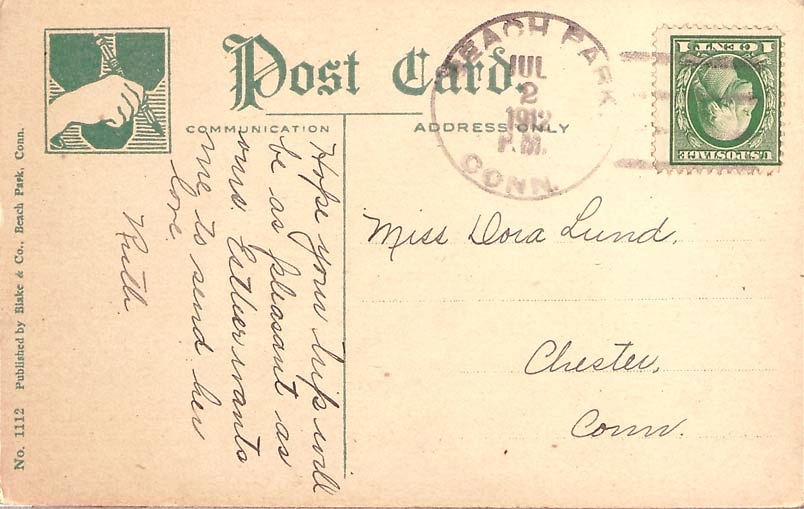 Post Card.
COMMUNICATION
ADDRESS ONLY
BEACH PARK
JUL
2
1912
P.M.
CONN.
1 ONE 1
U.S. POSTAGE
Hope your trip will
be as pleasant as
ours. Esther wants
me to send her
love.
Ruth.
Miss Dora Lund.
Chester,
Conn.
No. 1112 Published by Blake & Co., Beach Park, Conn.